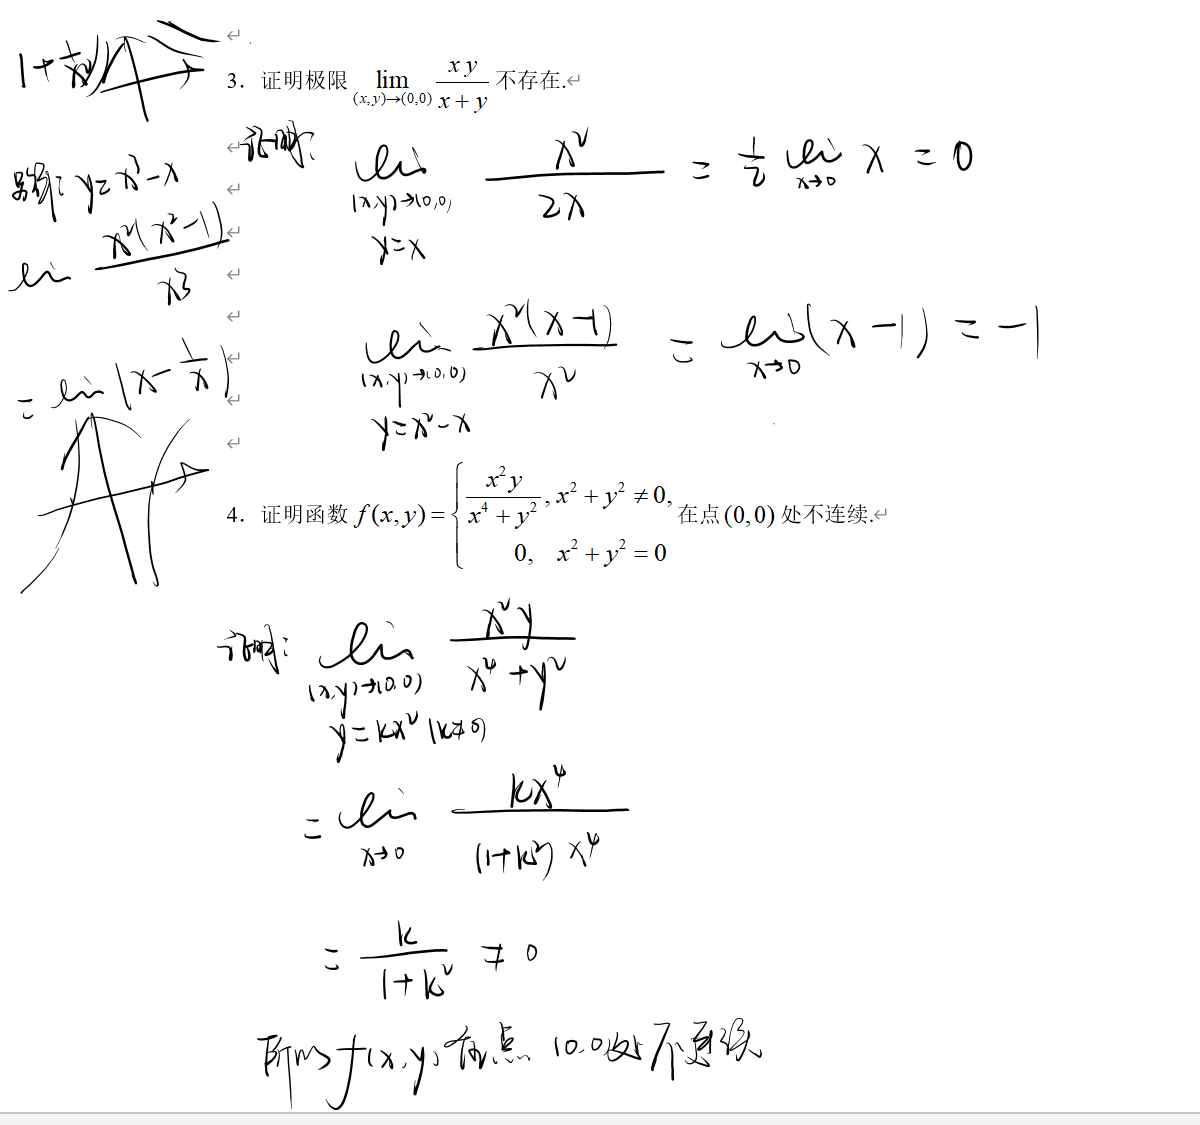 1+
3. 证明极限 lim (x,y)→(0,0) xy/(x+y) 不存在.
证明:
lim (x,y)→(0,0) y=x x²/2x = 1/2 lim x→0 x = 0
y=x³-x
lim x²(x²-1)/x³
= lim (x-1/x)
lim (x,y)→(0,0) y=x²-x x²(x-1)/x² = lim x→0 (x-1) = -1
4. 证明函数 f(x,y)={ x²y/(x⁴+y²), x²+y²≠0,
0, x²+y²=0
在点(0,0)处不连续.
证明:
lim (x,y)→(0,0) y=kx² (k≠0) x²y/(x⁴+y²)
= lim x→0 kx⁴/(1+k²)x⁴
= k/(1+k²) ≠ 0
所以 f(x,y) 在点 (0,0)处不连续